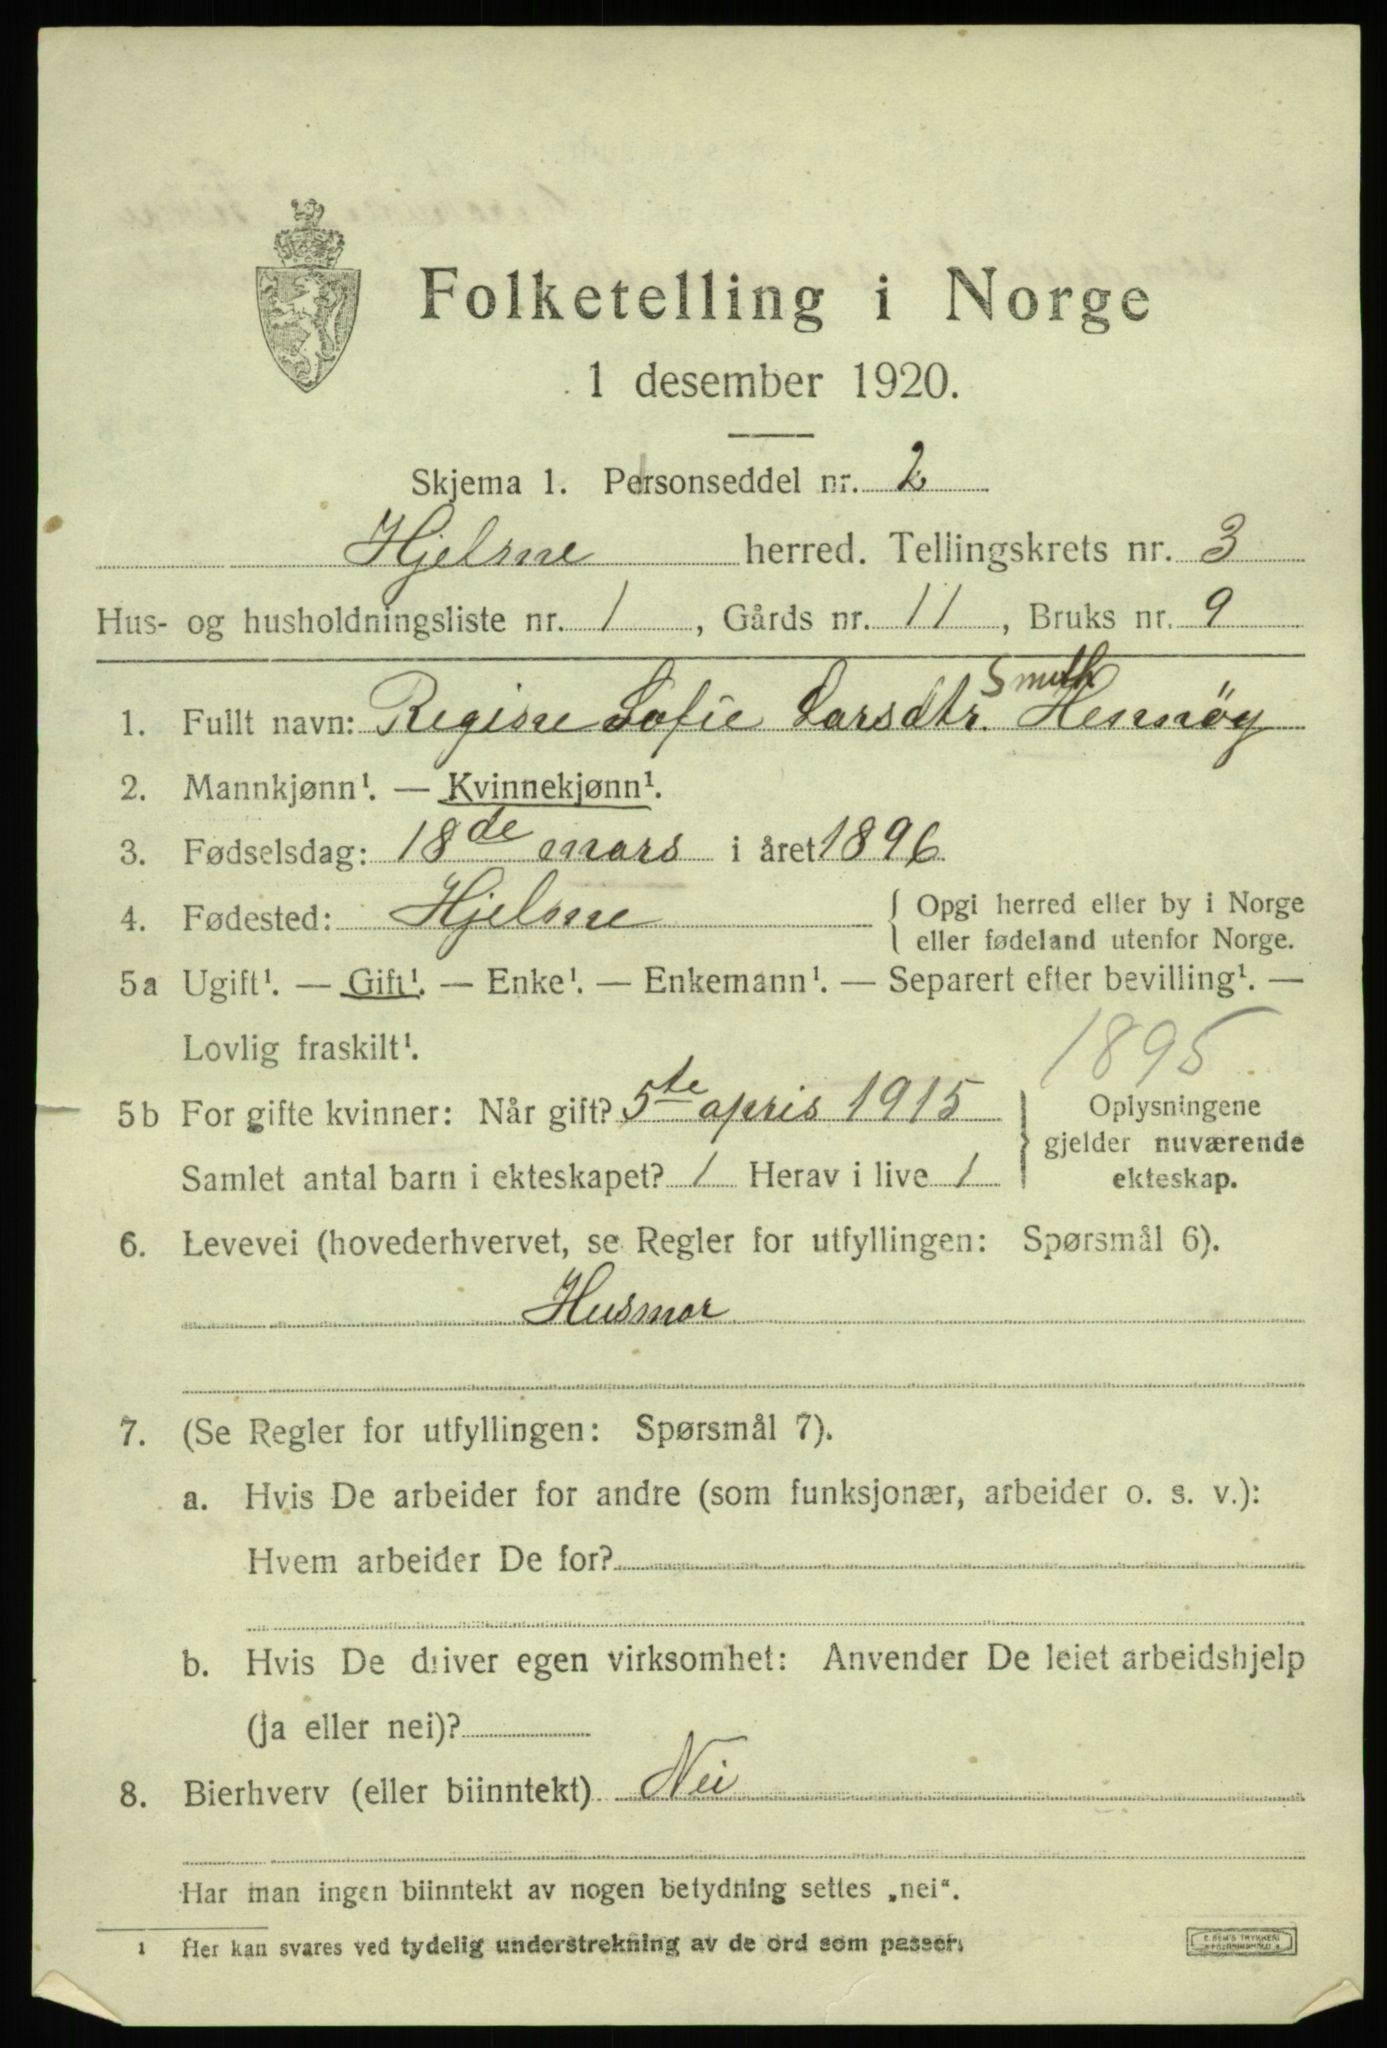 Folketelling i Norge
1 desember 1920.
Skjema 1. Personseddel nr. 2
Hjelme herred. Tellingskrets nr. 3
Hus- og husholdningsliste nr. 1, Gårds nr. 11, Bruks nr. 9
Smith
1. Fullt navn: Regine Sofie Larsdtr. Hernøy
2. Mannkjønn¹. — Kvinnekjønn¹.
3. Fødselsdag: 18de mars i året 1896
4. Fødested: Hjelme { Opgi herred eller by i Norge
eller fødeland utenfor Norge.
5a Ugift¹. — Gift¹. — Enke¹. — Enkemann¹. — Separert efter bevilling¹. —
Lovlig fraskilt¹.
1895
5b For gifte kvinner: Når gift? 5te apris 1915 } Oplysningene
gjelder nuværende
Samlet antal barn i ekteskapet? 1 Herav i live 1 ekteskap.
6. Levevei (hovederhvervet, se Regler for utfyllingen: Spørsmål 6).
Husmor
7. (Se Regler for utfyllingen: Spørsmål 7).
a. Hvis De arbeider for andre (som funksjonær, arbeider o. s. v.):
Hvem arbeider De for?
b. Hvis De driver egen virksomhet: Anvender De leiet arbeidshjelp
(ja eller nei)?
8. Bierhverv (eller biinntekt) Nei
Har man ingen biinntekt av nogen betydning settes „nei“.
¹ Her kan svares ved tydelig understrekning av de ord som passer.